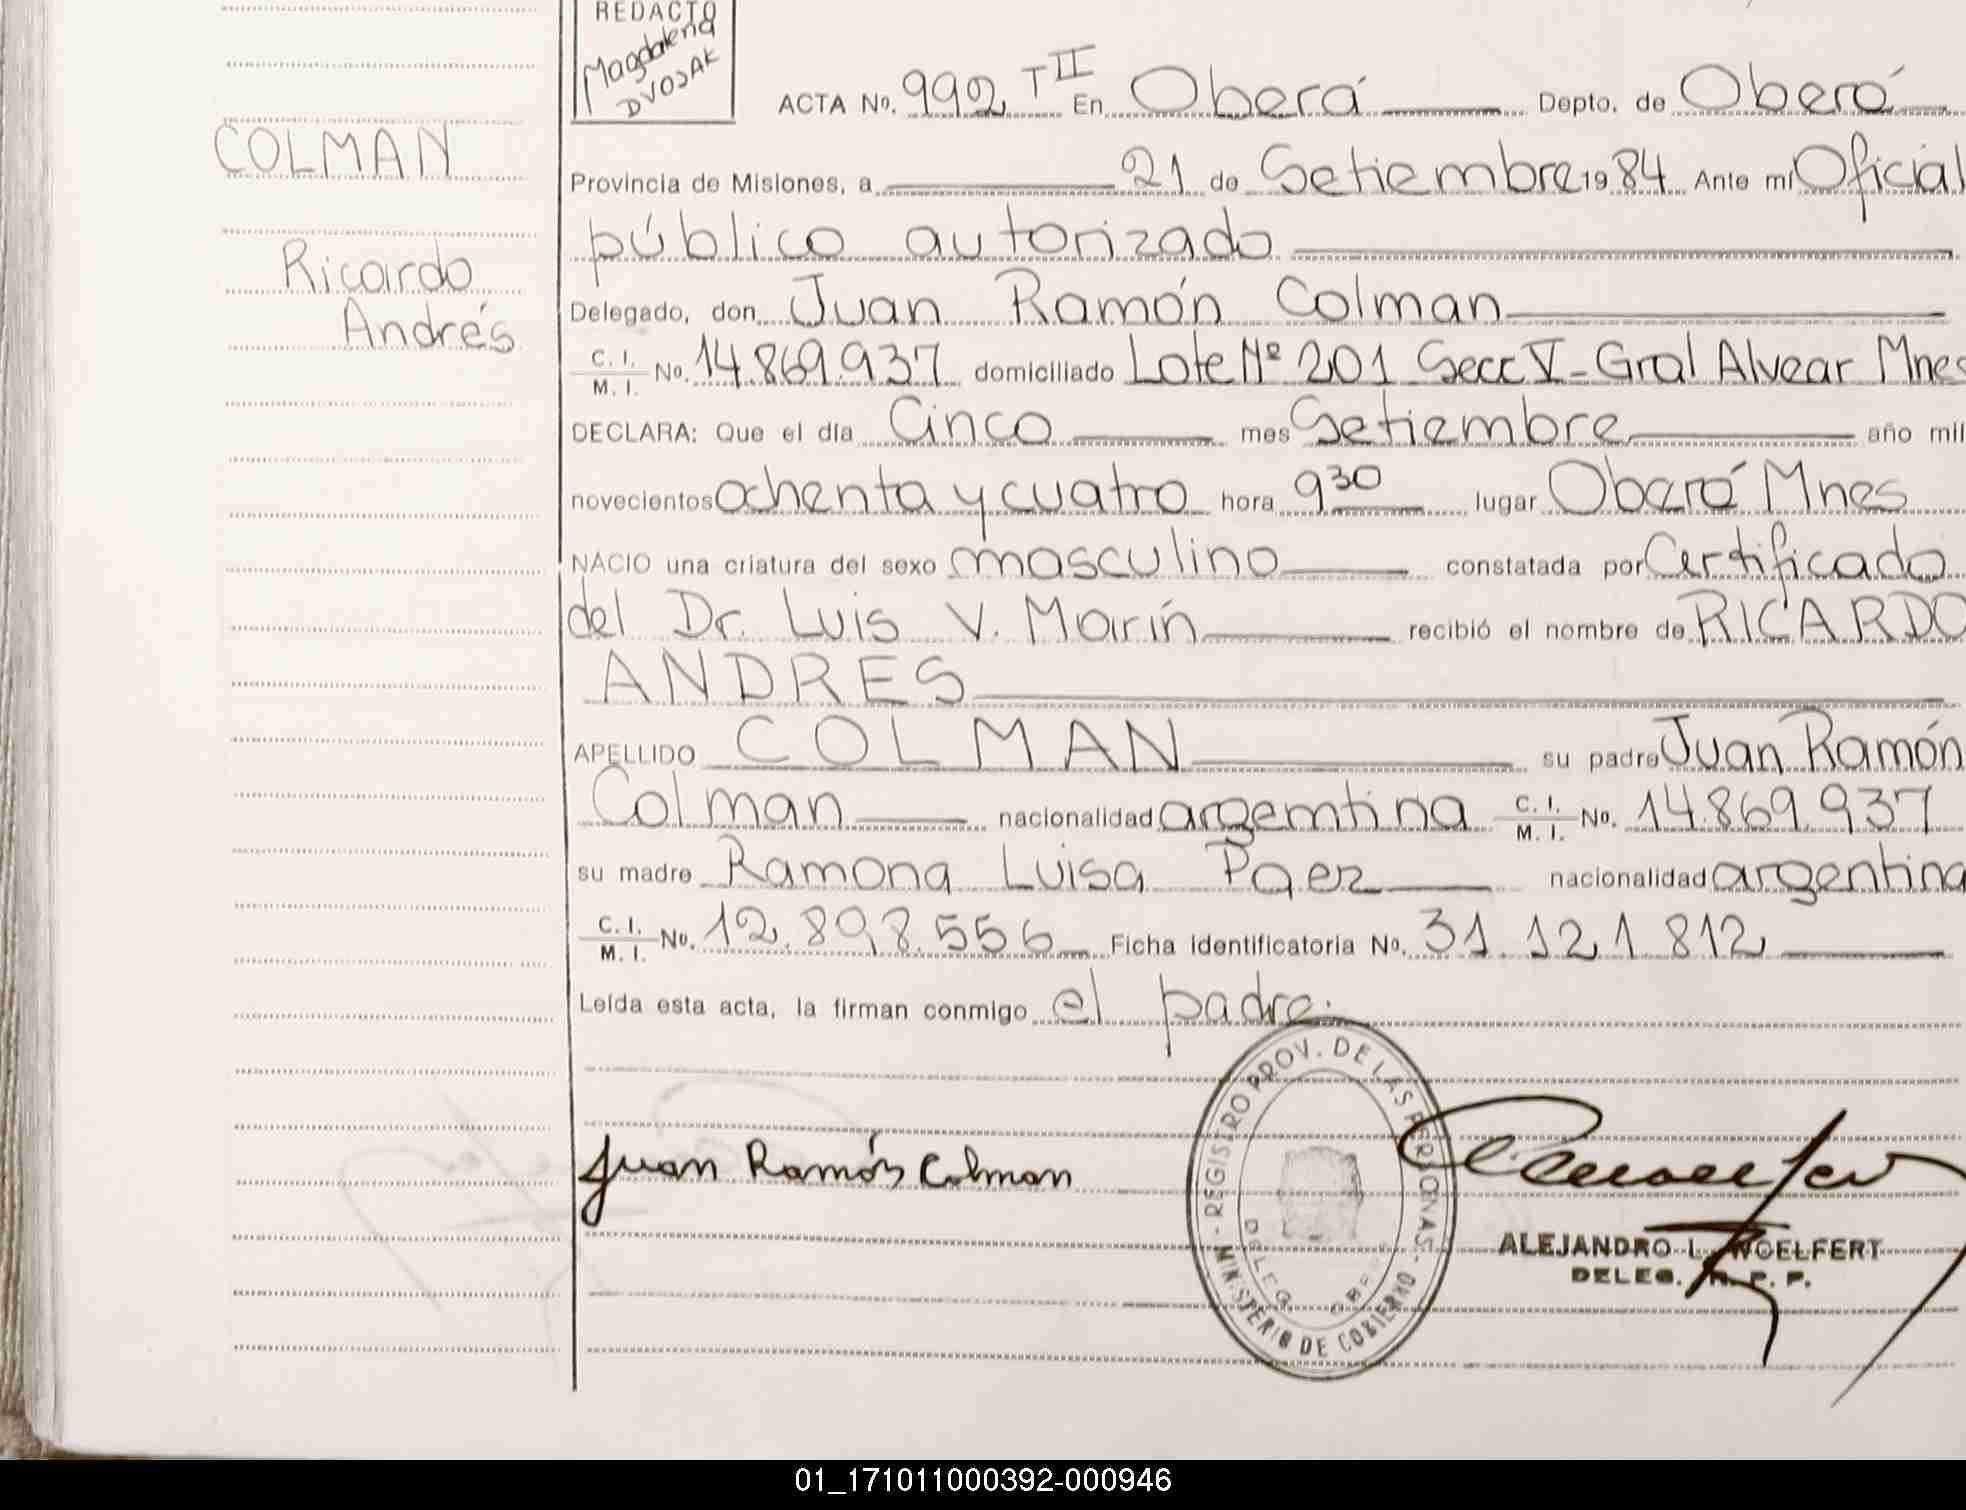 REDACTO
Magdalena
DVOJAK
ACTA No. 992 T II En Oberá Depto. de Oberá
COLMAN
Provincia de Misiones, a 21 de Setiembre 19 84 Ante mí Oficial
público autorizado
Ricardo
Delegado, don Juan Ramón Colman
Andrés
C. I. M. I. No. 14.869.937 domiciliado Lote Nº 201 Secc V - Gral Alvear Mnes
DECLARA: Que el día Cinco mes Setiembre año mil
novecientos ochenta y cuatro hora 9 30 lugar Oberá Mnes
NACIO una criatura del sexo masculino constatada por Certificado
del Dr. Luis V. Marín recibió el nombre de RICARDO
ANDRES
APELLIDO COLMAN su padre Juan Ramón
Colman nacionalidad argentina C. I. M. I. No. 14.869.937
su madre Ramona Luisa Paez nacionalidad argentina
C. I. M. I. No. 12.898.556 Ficha identificatoria No. 31.121.812
Leída esta acta, la firman conmigo el padre.
REGISTRO PROV. DE LAS PERSONAS
MINISTERIO DE GOBIERNO
DELEG.
Juan Ramón Colman
ALEJANDRO L. WOELFERT
DELEG. R. P. P.
01_171011000392-000946